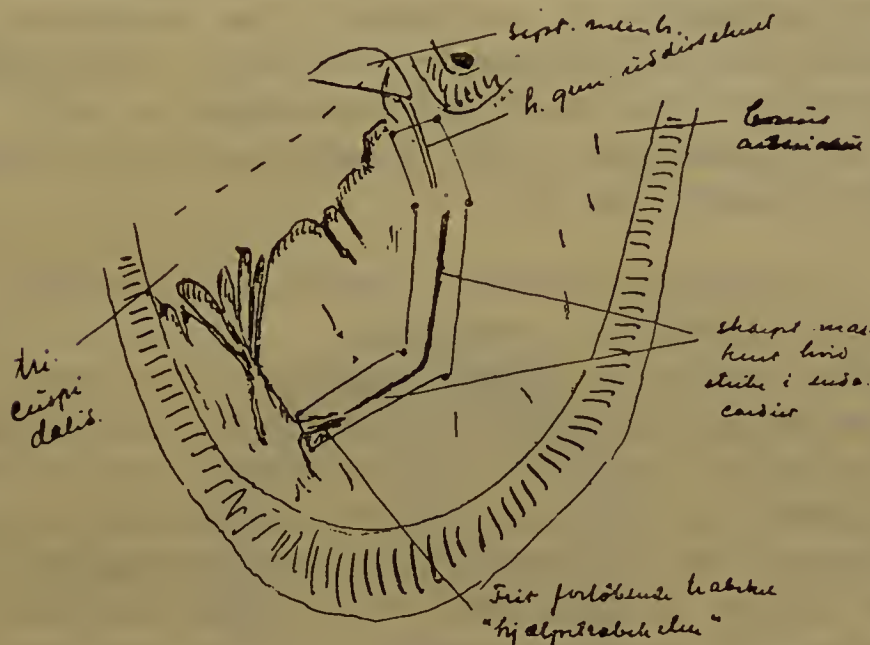 sept. memb.
h. gren uddissekeret
Conus
arteriosus
tri-
cuspi
dalis.
skarpt mar-
keret hvid
stribe i endo-
cardiet
Frit forløbende trabekel
"hjælpetrabekelen"